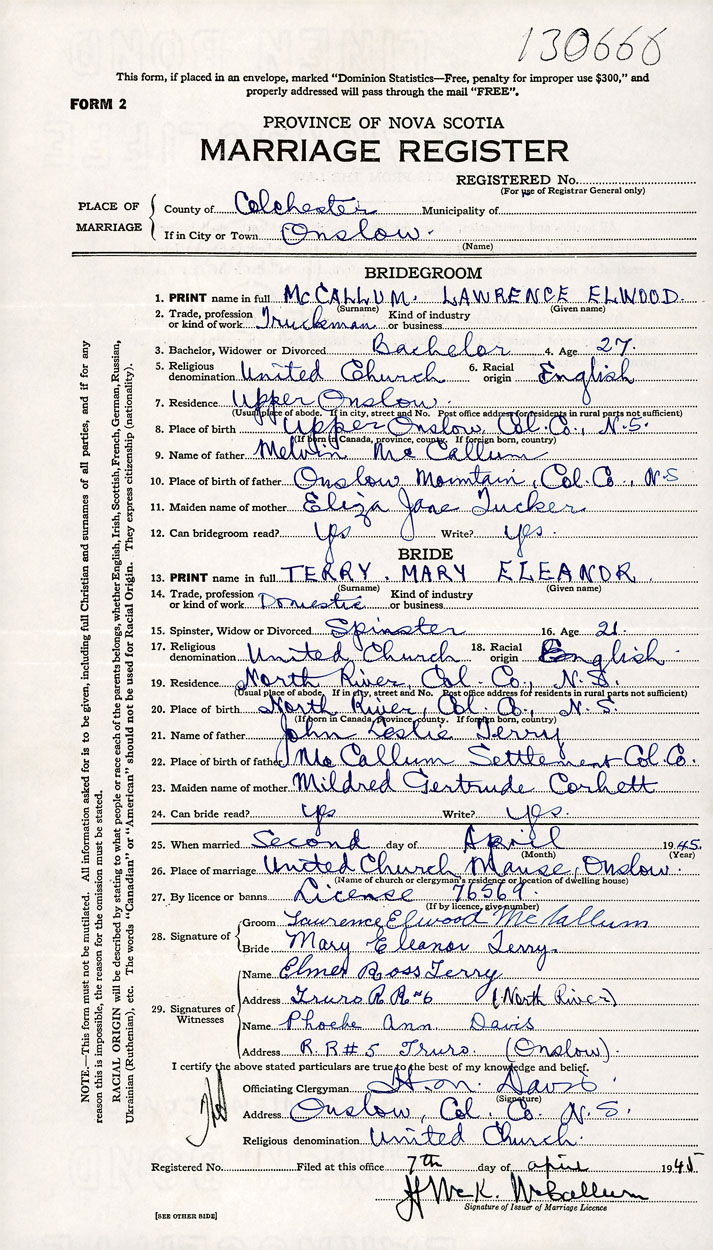 130666
This form, if placed in an envelope, marked "Dominion Statistics—Free, penalty for improper use $300," and
properly addressed will pass through the mail "FREE".
FORM 2
PROVINCE OF NOVA SCOTIA
MARRIAGE REGISTER
REGISTERED No.
(For use of Registrar General only)
PLACE OF MARRIAGE
County of Colchester Municipality of
If in City or Town Onslow.
(Name)
BRIDEGROOM
1. PRINT name in full McCALLUM. LAWRENCE ELWOOD.
(Surname) (Given name)
2. Trade, profession or kind of work Truckman Kind of industry or business
3. Bachelor, Widower or Divorced Bachelor 4. Age 27.
5. Religious denomination United Church 6. Racial origin English
7. Residence Upper Onslow.
(Usual place of abode. If in city, street and No. Post office address for residents in rural parts not sufficient)
8. Place of birth Upper Onslow, Col. Co., N.S.
(If born in Canada, province, county. If foreign born, country)
9. Name of father Melvin McCallum
10. Place of birth of father Onslow Mountain, Col. Co., N.S
11. Maiden name of mother Eliza Jane Tucker.
12. Can bridegroom read? yes Write? yes.
BRIDE
13. PRINT name in full TERRY. MARY ELEANOR
(Surname) (Given name)
14. Trade, profession or kind of work Domestic Kind of industry or business
15. Spinster, Widow or Divorced Spinster 16. Age 21.
17. Religious denomination United Church 18. Racial origin English.
19. Residence North River, Col. Co., N.S.
(Usual place of abode. If in city, street and No. Post office address for residents in rural parts not sufficient)
20. Place of birth North River, Col. Co., N.S.
(If born in Canada, province, county. If foreign born, country)
21. Name of father John Leslie Terry
22. Place of birth of father McCallum Settlement Col. Co.
23. Maiden name of mother Mildred Gertrude Corbett
24. Can bride read? yes Write? yes.
25. When married Second day of April 1945
(Month) (Year)
26. Place of marriage United Church Manse, Onslow.
(Name of church or clergyman's residence or location of dwelling house)
27. By licence or banns License 76569.
(If by licence, give number)
28. Signature of
Groom Lawrence Elwood McCallum
Bride Mary Eleanor Terry.
29. Signatures of Witnesses
Name Elmer Ross Terry
Address Truro R R #6 (North River)
Name Phoebe Ann. Davis
Address R.R # 5 Truro. (Onslow).
I certify the above stated particulars are true to the best of my knowledge and belief.
Officiating Clergyman Davis
(Signature)
Address Onslow, Col. Co. N.S.
Religious denomination United Church.
Registered No. Filed at this office 7th day of april 1945
McK. McCallum
Signature of Issuer of Marriage Licence
[SEE OTHER SIDE]
NOTE.—This form must not be mutilated. All information asked for is to be given, including full Christian and surnames of all parties, and if for any
reason this is impossible, the reason for the omission must be stated.
RACIAL ORIGIN will be described by stating to what people or race each of the parents belongs, whether English, Irish, Scottish, French, German, Russian,
Ukrainian (Ruthenian), etc. The words "Canadian" or "American" should not be used for Racial Origin. They express citizenship (nationality).